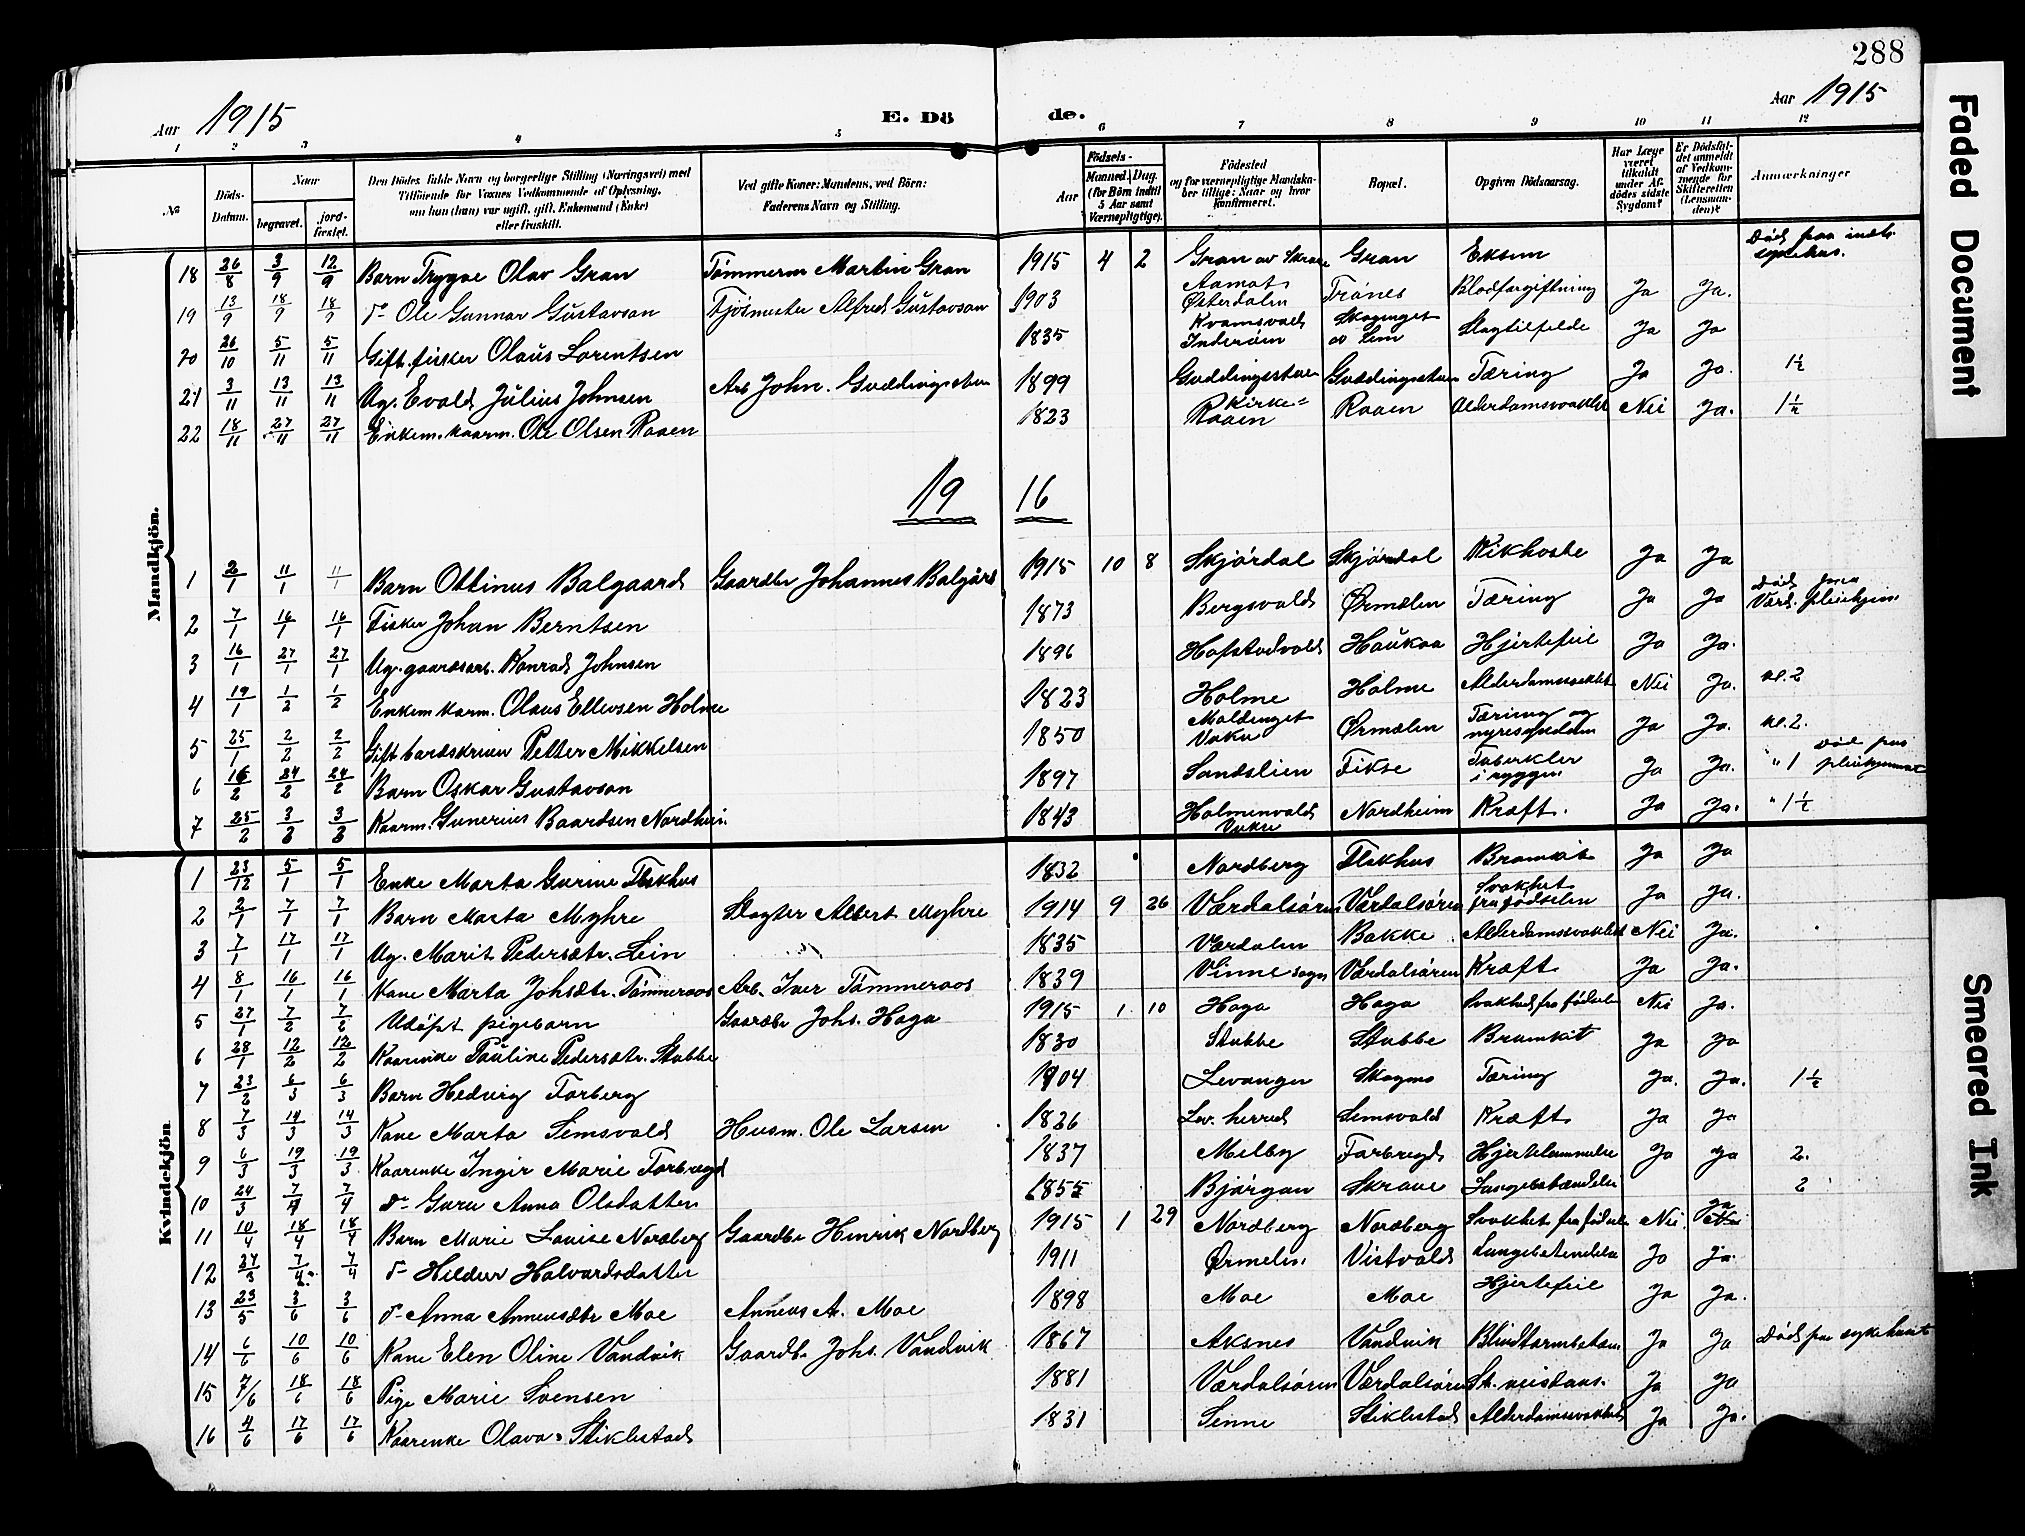 288
Aar 1915
E. Dö de.
Aar 1915
1 2 3 4 5 6 7 8 9 10 11 12
№
Döds-Datum.
Naar
begravet.
jord-fæstet.
Den Dödes fulde Navn og borgerlige Stilling (Næringsvei) med
Tilföiende for Voxnes Vedkommende af Oplysning,
om hun (han) var ugift, gift, Enkemand (Enke)
eller fraskilt.
Ved gifte Koner: Mandens, ved Börn:
Faderens Navn og Stilling.
Födsels-
Aar
Maaned. Dag.
(for Börn indtil
5 Aar samt
Værnepligtige).
Födested
og for værnepligtige Mandska-
ber tillige: Naar og hvor
konfirmeret.
Bopæl.
Opgiven Dödsaarsag.
Har Læge
været
tilkaldt
under Af-
dödes sidste
Sygdom?
Er Dödsfal-
det anmeldt
af Vedkom-
mende for
Skifteretten
(Lensman-
den)?
Anmærkninger
Mandkjön.
18 26/8 3/9 12/9 Barn Trygve Olav Gran Tømmerm Martin Gran 1915 4 2 Gran av Skrave Gran Eksem Död paa indh. sykehus.
19 13/9 18/9 18/9 d- Ole Gunnar Gustavson Fjösmester Alfred Gustavson 1903 Aamot Østerdalen Trönes Blodforgiftning Ja Ja.
20 26/10 5/11 5/11 Gift. fisker Olaus Lorentsen 1835 Kvamsvald Inderøen Skogenget av Lein Slagtilfelde Ja Ja
21 3/11 13/11 13/11 Ug. Evald Julius Johnsen Arb John. Guddingstuen 1899 Guddingsstuen Guddingsstuen Tæring Ja Ja. 1½
22 18/11 27/11 27/11 Enkem. kaarm. Ole Olsen Raaen 1823 Kirke=Raaen Raaen Alderdomssvakhet Nei Ja. 1½
19 16
1 2/1 11/1 11/1 Barn Ottinus Balgaard Gaardbr Johannes Balgård 1915 10 8 Skjördal Skjördal Kikhoste Ja Ja
2 7/1 16/1 16/1 Fisker Johan Berntsen 1873 Bergsvald Ørmelen Tæring Ja Ja Död paa Værd. pleiehjem
3 16/1 27/1 27/1 Ug. gaardsarb. Konrad Johnsen 1896 Hofstadvald Haukaa Hjertefeil Ja Ja.
4 19/1 1/2 1/2 Enkem karm. Olaus Ellevsen Holme 1823 Holme Holme Alderdomssvakhet Nei Ja. kl. 2
5 25/1 2/2 2/2 Gift bardskriver Petter Mikkelsen 1850 Moldenget Vuku Ørmelen Tæring og nyresygdom Ja Ja. kl. 2.
6 16/2 24/2 24/2 Barn Oskar Gustavson 1897 Sandslien Fikse Tuberkler i ryggen Ja Ja. " 1 Död paa pleiehjemmet
7 25/2 3/3 3/3 Kaarm. Gunerius Baardsen Nordheim. 1843 Holmenvald Vuku Nordheim Kræft. Ja Ja. " 1½
Kvindekjön.
1 23/12 5/1 5/1 Enke Marta Gurine Flekhus 1832 Nordberg Flekhus Bronkit Ja Ja
2 2/1 7/1 7/1 Barn Marta Myhre Slagter Albert Myhre 1914 9 26 Værdalsören Værdalsören Svakhet fra fødselen Ja Ja.
3 7/1 17/1 17/1 Ug. Marit Pedersdtr. Lein 1835 Værdalen Bakke Alderdomssvakhet Nei Ja.
4 8/1 16/1 16/1 Kone Marta Johsdtr. Tømmeraas Arb. Iver Tømmeraas 1839 Vinne sogn Værdalsören Kræft Ja Ja.
5 27/1 7/2 7/2 Udøpt pigebarn Gaardbr Johs. Haga 1915 1 10 Haga Haga Svakhed fra fødsel Nei Ja.
6 28/1 12/2 12/2 Kaarenke Pauline Pedersdtr. Stubbe 1830 Stubbe Stubbe Bronkit Ja Ja
7 23/2 6/3 6/3 Barn Hedvig Forberg 1904 Levanger Skogmo Tæring Ja. Ja. 1½
8 7/3 14/3 14/3 Kone Marta Semsvald Husm. Ole Larsen 1826 Lev. herred Semsvald Kræft Ja Ja
9 6/3 19/3 19/3 Kaarenke Ingir Marie Forbregd 1837 Melby Forbregd Hjertelammelse Ja Ja 2.
10 24/3 7/4 7/4 d- Guru Anna Olsdatter 1855 Bjørgan Skrave Lungebetændelse 2
11 10/4 18/4 18/4 Barn Marie Lovise Nordberg Gaardbr Henrik Nordberg 1915 1 29 Nordberg Nordberg Svakhet fra fødsel Nei Ja
12 27/3 7/4 7/4 d- Hildur Halvardsdatter 1911 Ørmelen Vistvald Lungebetendelse Ja Ja
13 23/5 3/6 3/6 d- Anna Anneusdtr Moe Anneus A. Moe 1898 Moe Moe Hjertefeil Ja Ja.
14 6/6 10/6 10/6 Kone Elen Oline Vandvik Gaardbr Johs. Vandvik 1867 Aksnes Vandvik Blindtarmsbetæn. Ja Ja Död paa sykehuset
15 7/6 18/6 18/6 Pige Marie Svensen 1881 Værdalsören Værdalsören Ja Ja
16 4/6 17/6 17/6 Kaarenke Olava Stiklestad 1831 Senne Stiklestad Alderdomssvakhed Ja Ja.
Faded Document
Smeared Ink